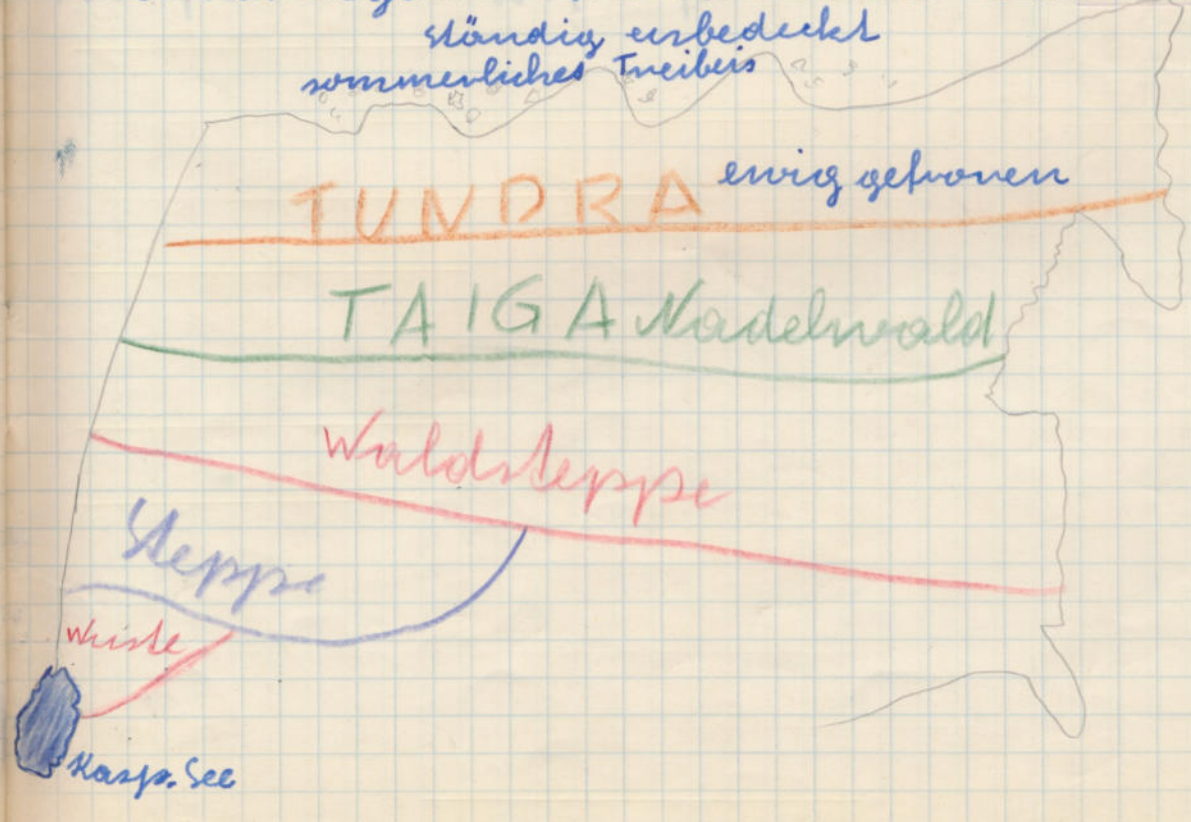 ständig eisbedeckt
sommerliches Treibeis
TUNDRA ewig gefroren
TAIGA Nadelwald
Waldsteppe
Steppe
Wüste
Kasp. See